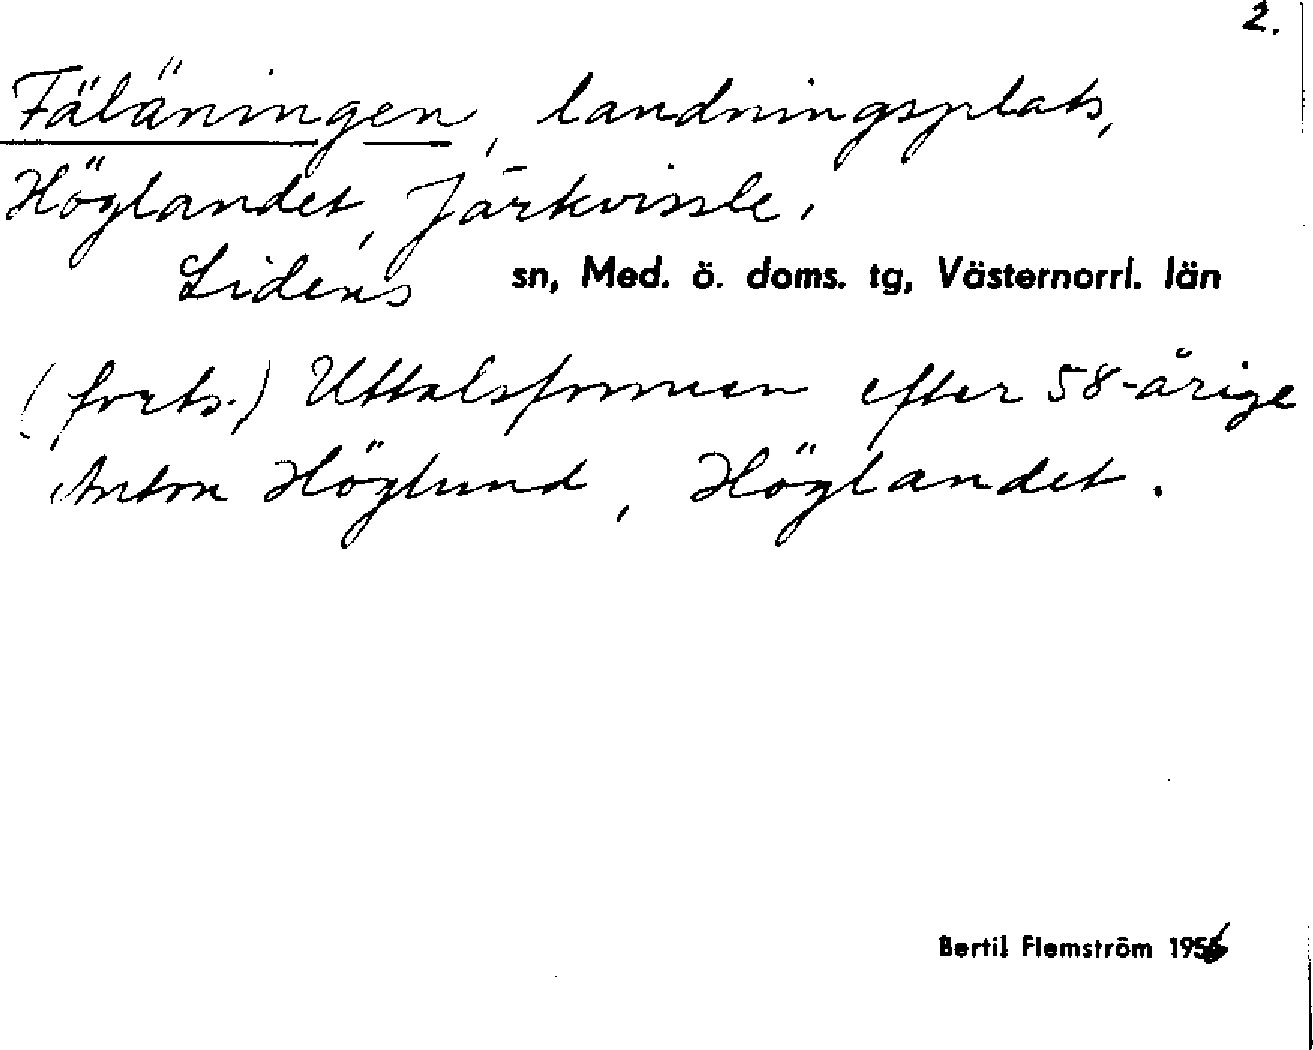 2.
Fäläningen, landningsplats,
Höglandet, Järkvissle,
Lidens sn, Med. ö. doms. tg, Västernorrl. län
(forts.) Uttalsformen efter 58-årige
Anton Höglund, Höglandet.
Bertil Flemström 1956